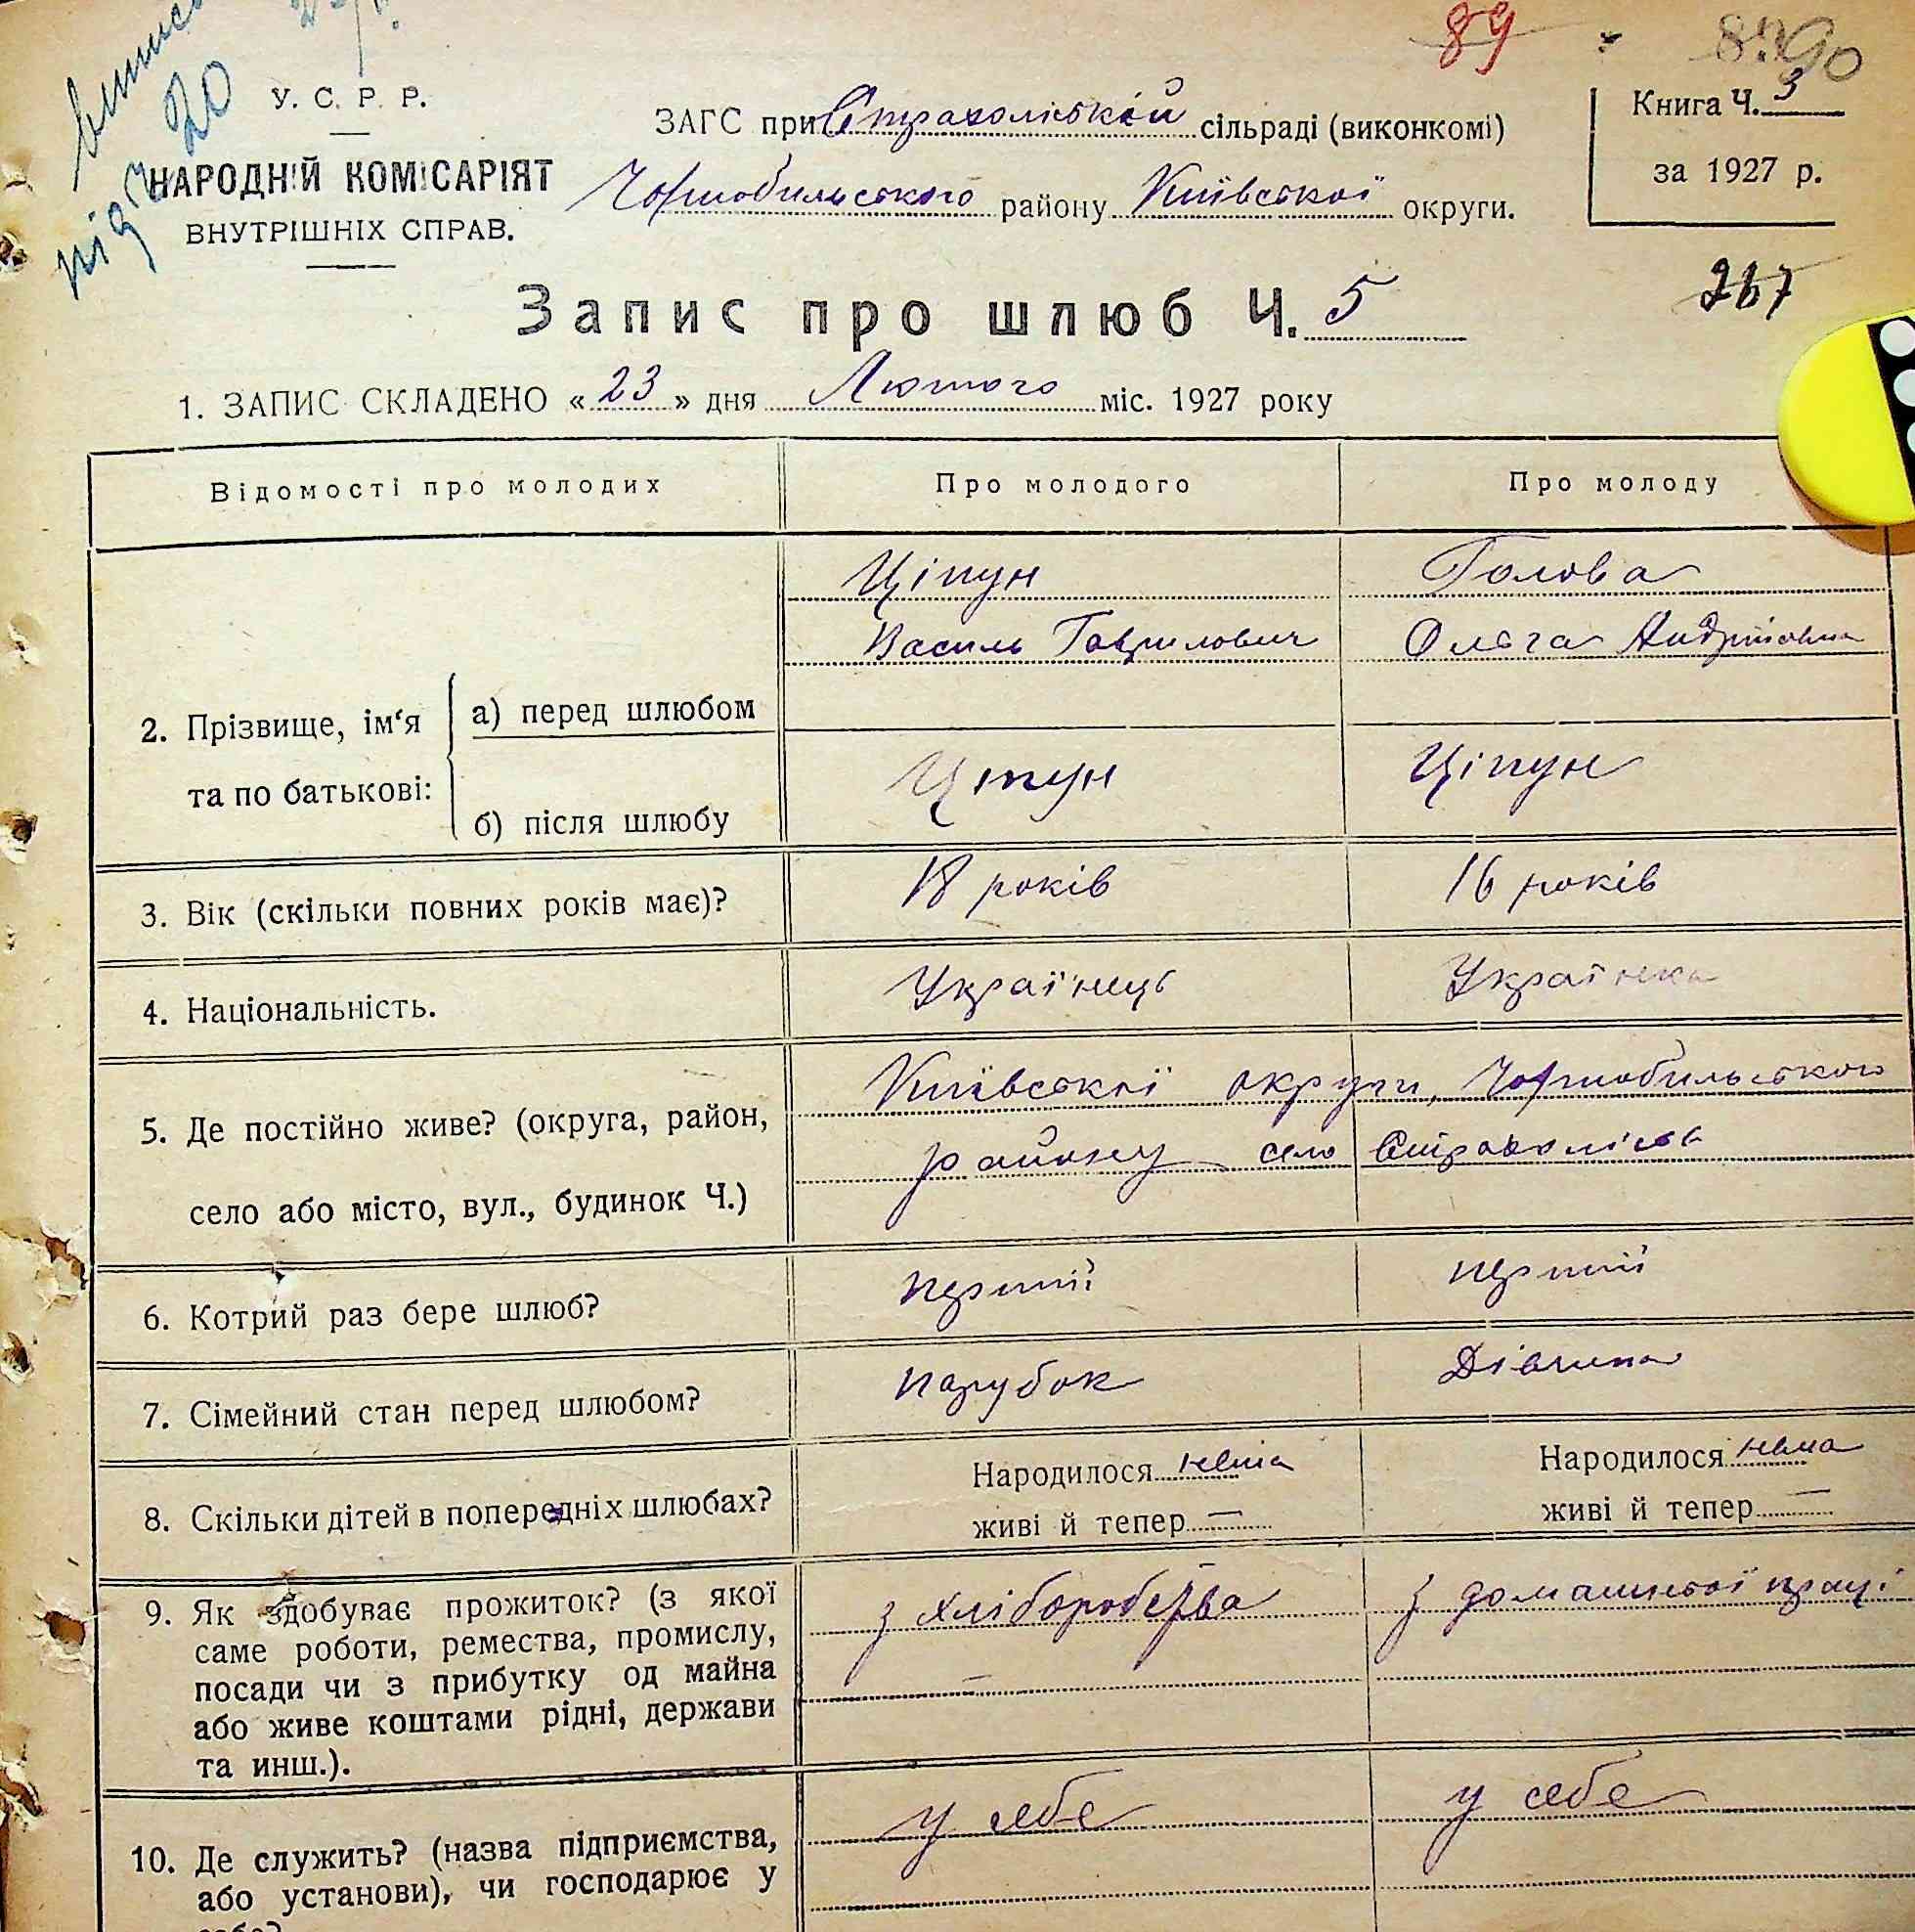 89 8790
У. С. Р. Р.
НАРОДНІЙ КОМІСАРІЯТ
ВНУТРІШНІХ СПРАВ.
20
ЗАГС при Страхоліській сільраді (виконкомі)
Чорнобильського району Київської округи.
Книга Ч. 3
за 1927 р.
267
Запис про шлюб Ч. 5
1. ЗАПИС СКЛАДЕНО « 23 » дня Лютого міс. 1927 року
Відомості про молодих Про молодого Про молоду
2. Прізвище, ім‘я та по батькові:
а) перед шлюбом
Ціпун Голова
Василь Гаврилович Ольга Андріївна
б) після шлюбу
Ціпун Ціпун
3. Вік (скільки повних років має)? 18 років 16 років
4. Національність. Українець Українка
5. Де постійно живе? (округа, район,
село або місто, вул., будинок Ч.)
Київської округи, Чорнобильського
району село Страхолісся
6. Котрий раз бере шлюб? перший перший
7. Сімейний стан перед шлюбом? парубок Дівчина
8. Скільки дітей в попередніх шлюбах?
Народилося нема Народилося нема
живі й тепер — живі й тепер —
9. Як здобуває прожиток? (з якої
саме роботи, ремества, промислу,
посади чи з прибутку од майна
або живе коштами рідні, держави
та инш.).
з хліборобства з домашньої праці
—
10. Де служить? (назва підприємства,
або установи), чи господарює у
себе?
у себе у себе